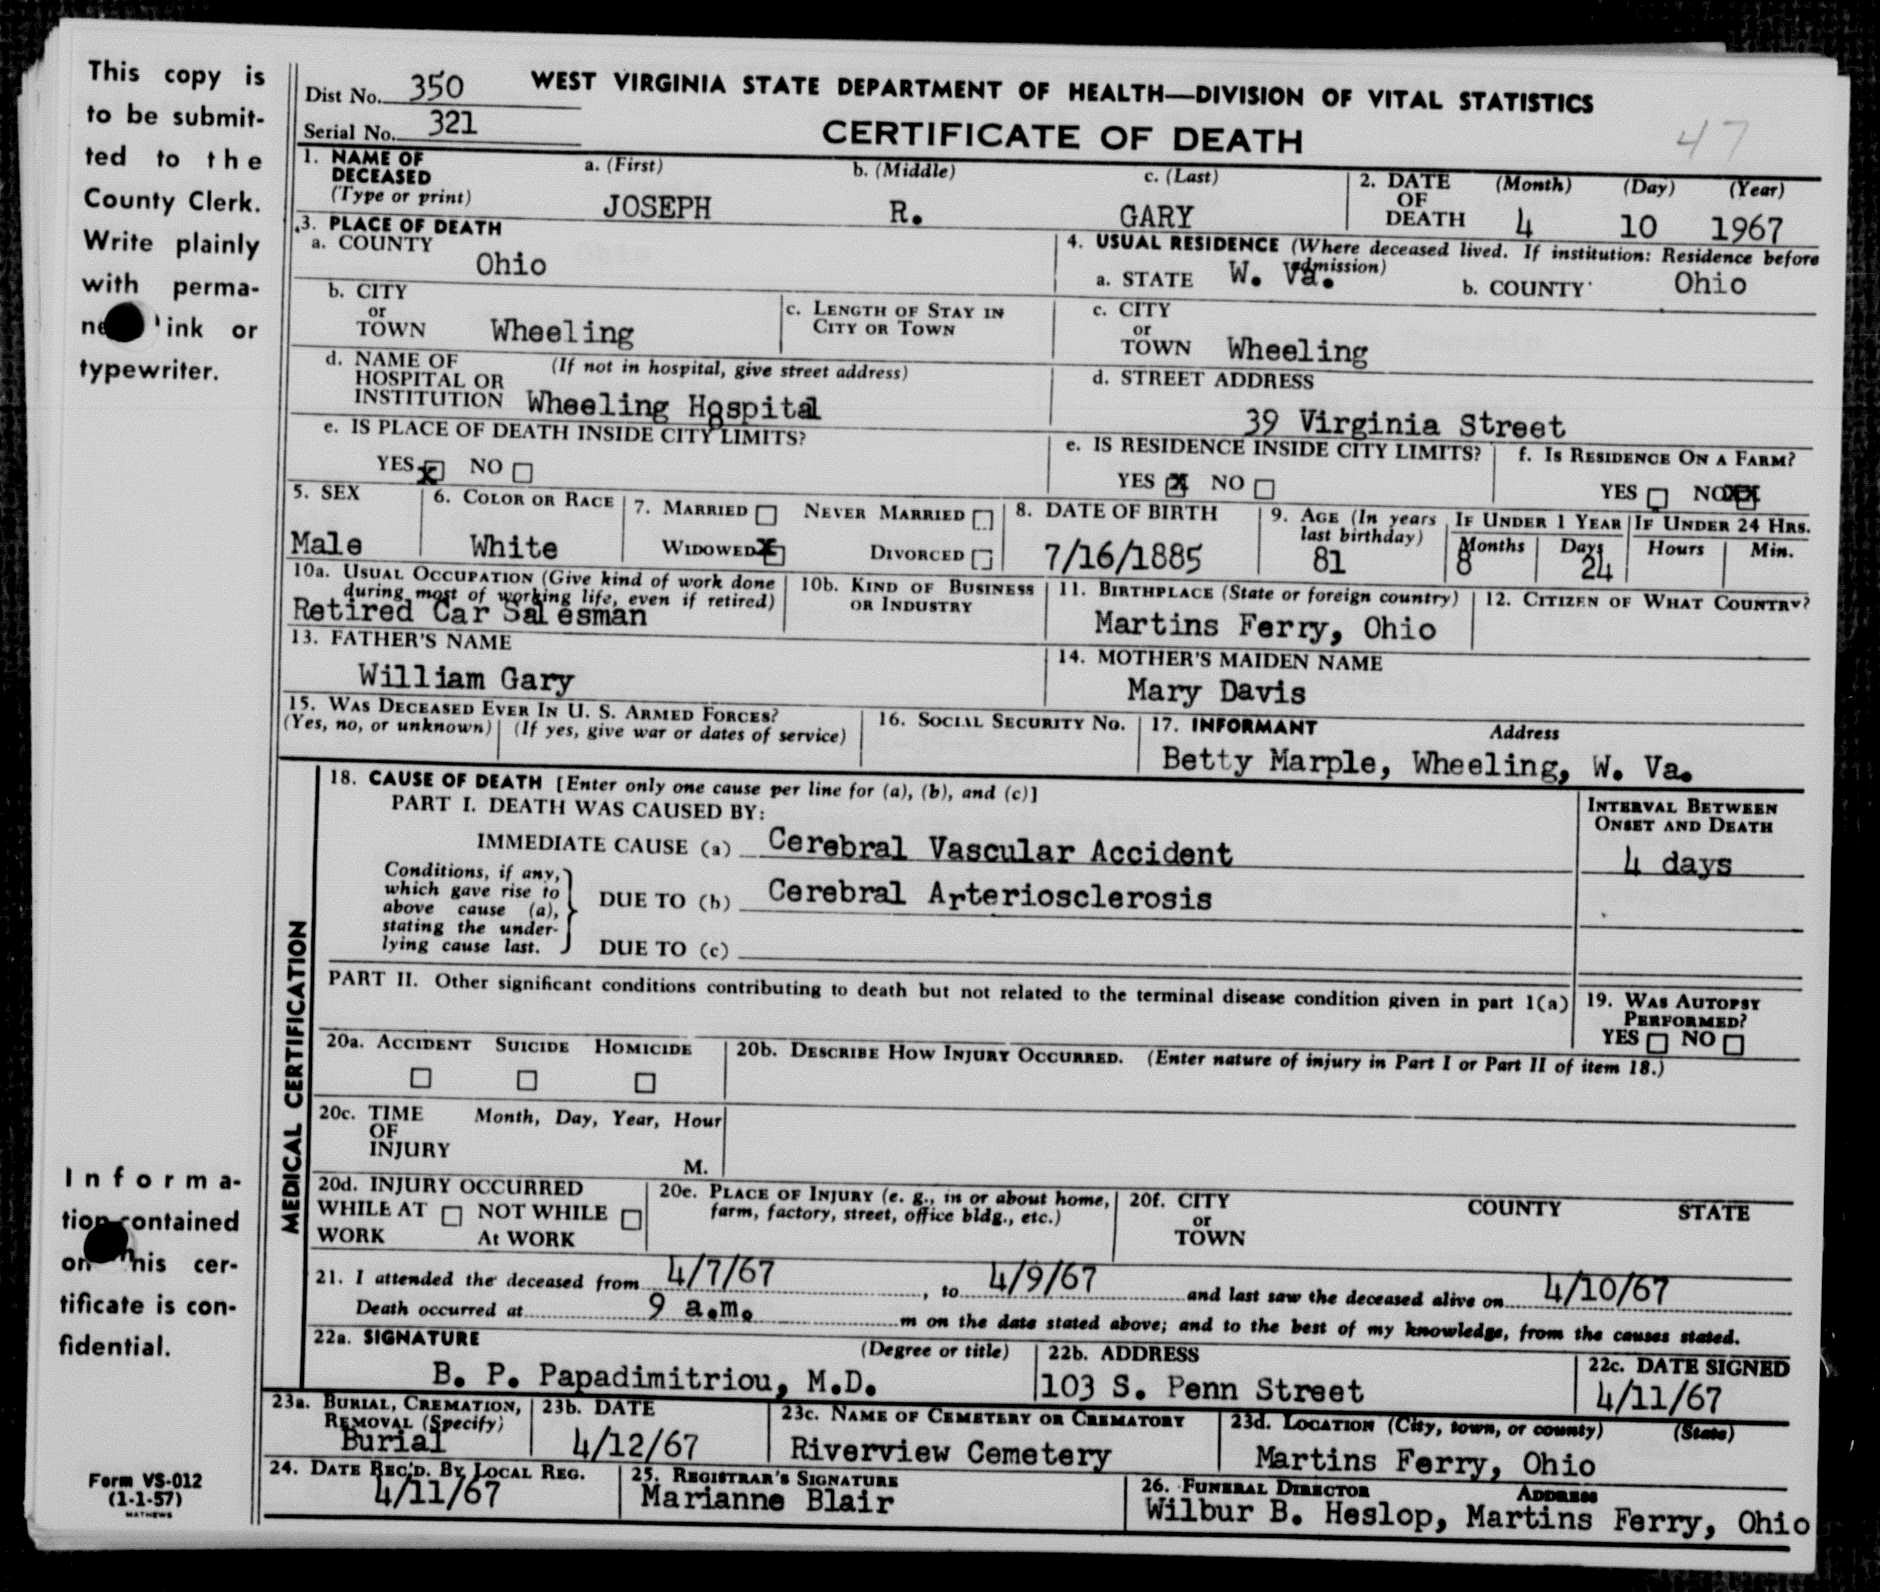 This copy is
to be submit-
ted to the
County Clerk.
Write plainly
with perma-
ink or
typewriter.
Dist No. 350
Serial No. 321
WEST VIRGINIA STATE DEPARTMENT OF HEALTH—DIVISION OF VITAL STATISTICS
CERTIFICATE OF DEATH
47
1. NAME OF DECEASED (Type or print)
a. (First) JOSEPH
b. (Middle) R.
c. (Last) GARY
2. DATE OF DEATH (Month) (Day) (Year)
4 10 1967
3. PLACE OF DEATH
a. COUNTY Ohio
4. USUAL RESIDENCE (Where deceased lived. If institution: Residence before admission)
a. STATE W. Va.
b. COUNTY Ohio
b. CITY or TOWN Wheeling
c. LENGTH OF STAY IN CITY OR TOWN
c. CITY or TOWN Wheeling
d. NAME OF HOSPITAL OR INSTITUTION (If not in hospital, give street address)
Wheeling Hospital
d. STREET ADDRESS
39 Virginia Street
e. IS PLACE OF DEATH INSIDE CITY LIMITS?
YES X NO
e. IS RESIDENCE INSIDE CITY LIMITS?
YES X NO
f. IS RESIDENCE ON A FARM?
YES NO XX
5. SEX
Male
6. COLOR OR RACE
White
7. MARRIED NEVER MARRIED
WIDOWED X DIVORCED
8. DATE OF BIRTH
7/16/1885
9. AGE (In years last birthday)
81
IF UNDER 1 YEAR
Months Days
8 24
IF UNDER 24 HRS.
Hours Min.
10a. USUAL OCCUPATION (Give kind of work done during most of working life, even if retired)
Retired Car Salesman
10b. KIND OF BUSINESS OR INDUSTRY
11. BIRTHPLACE (State or foreign country)
Martins Ferry, Ohio
12. CITIZEN OF WHAT COUNTRY?
13. FATHER'S NAME
William Gary
14. MOTHER'S MAIDEN NAME
Mary Davis
15. WAS DECEASED EVER IN U. S. ARMED FORCES?
(Yes, no, or unknown) (If yes, give war or dates of service)
16. SOCIAL SECURITY NO.
17. INFORMANT Address
Betty Marple, Wheeling, W. Va.
MEDICAL CERTIFICATION
18. CAUSE OF DEATH [Enter only one cause per line for (a), (b), and (c)]
PART I. DEATH WAS CAUSED BY:
IMMEDIATE CAUSE (a) Cerebral Vascular Accident
INTERVAL BETWEEN ONSET AND DEATH
4 days
Conditions, if any, which gave rise to above cause (a), stating the under-lying cause last.
DUE TO (b) Cerebral Arteriosclerosis
DUE TO (c)
PART II. Other significant conditions contributing to death but not related to the terminal disease condition given in part 1(a)
19. WAS AUTOPSY PERFORMED?
YES NO
20a. ACCIDENT SUICIDE HOMICIDE
20b. DESCRIBE HOW INJURY OCCURRED. (Enter nature of injury in Part I or Part II of item 18.)
20c. TIME OF INJURY Month, Day, Year, Hour
M.
20d. INJURY OCCURRED
WHILE AT WORK NOT WHILE At WORK
20e. PLACE OF INJURY (e. g., in or about home, farm, factory, street, office bldg., etc.)
20f. CITY or TOWN COUNTY STATE
21. I attended the deceased from 4/7/67, to 4/9/67 and last saw the deceased alive on 4/10/67
Death occurred at 9 a.m. m on the date stated above; and to the best of my knowledge, from the causes stated.
22a. SIGNATURE (Degree or title)
B. P. Papadimitriou, M.D.
22b. ADDRESS
103 S. Penn Street
22c. DATE SIGNED
4/11/67
23a. BURIAL, CREMATION, REMOVAL (Specify)
Burial
23b. DATE
4/12/67
23c. NAME OF CEMETERY OR CREMATORY
Riverview Cemetery
23d. LOCATION (City, town, or county) (State)
Martins Ferry, Ohio
24. DATE REC'D. BY LOCAL REG.
4/11/67
25. REGISTRAR'S SIGNATURE
Marianne Blair
26. FUNERAL DIRECTOR ADDRESS
Wilbur B. Heslop, Martins Ferry, Ohio
Informa-
tion contained
his cer-
tificate is con-
fidential.
Form VS-012
(1-1-57)
MATHEWS